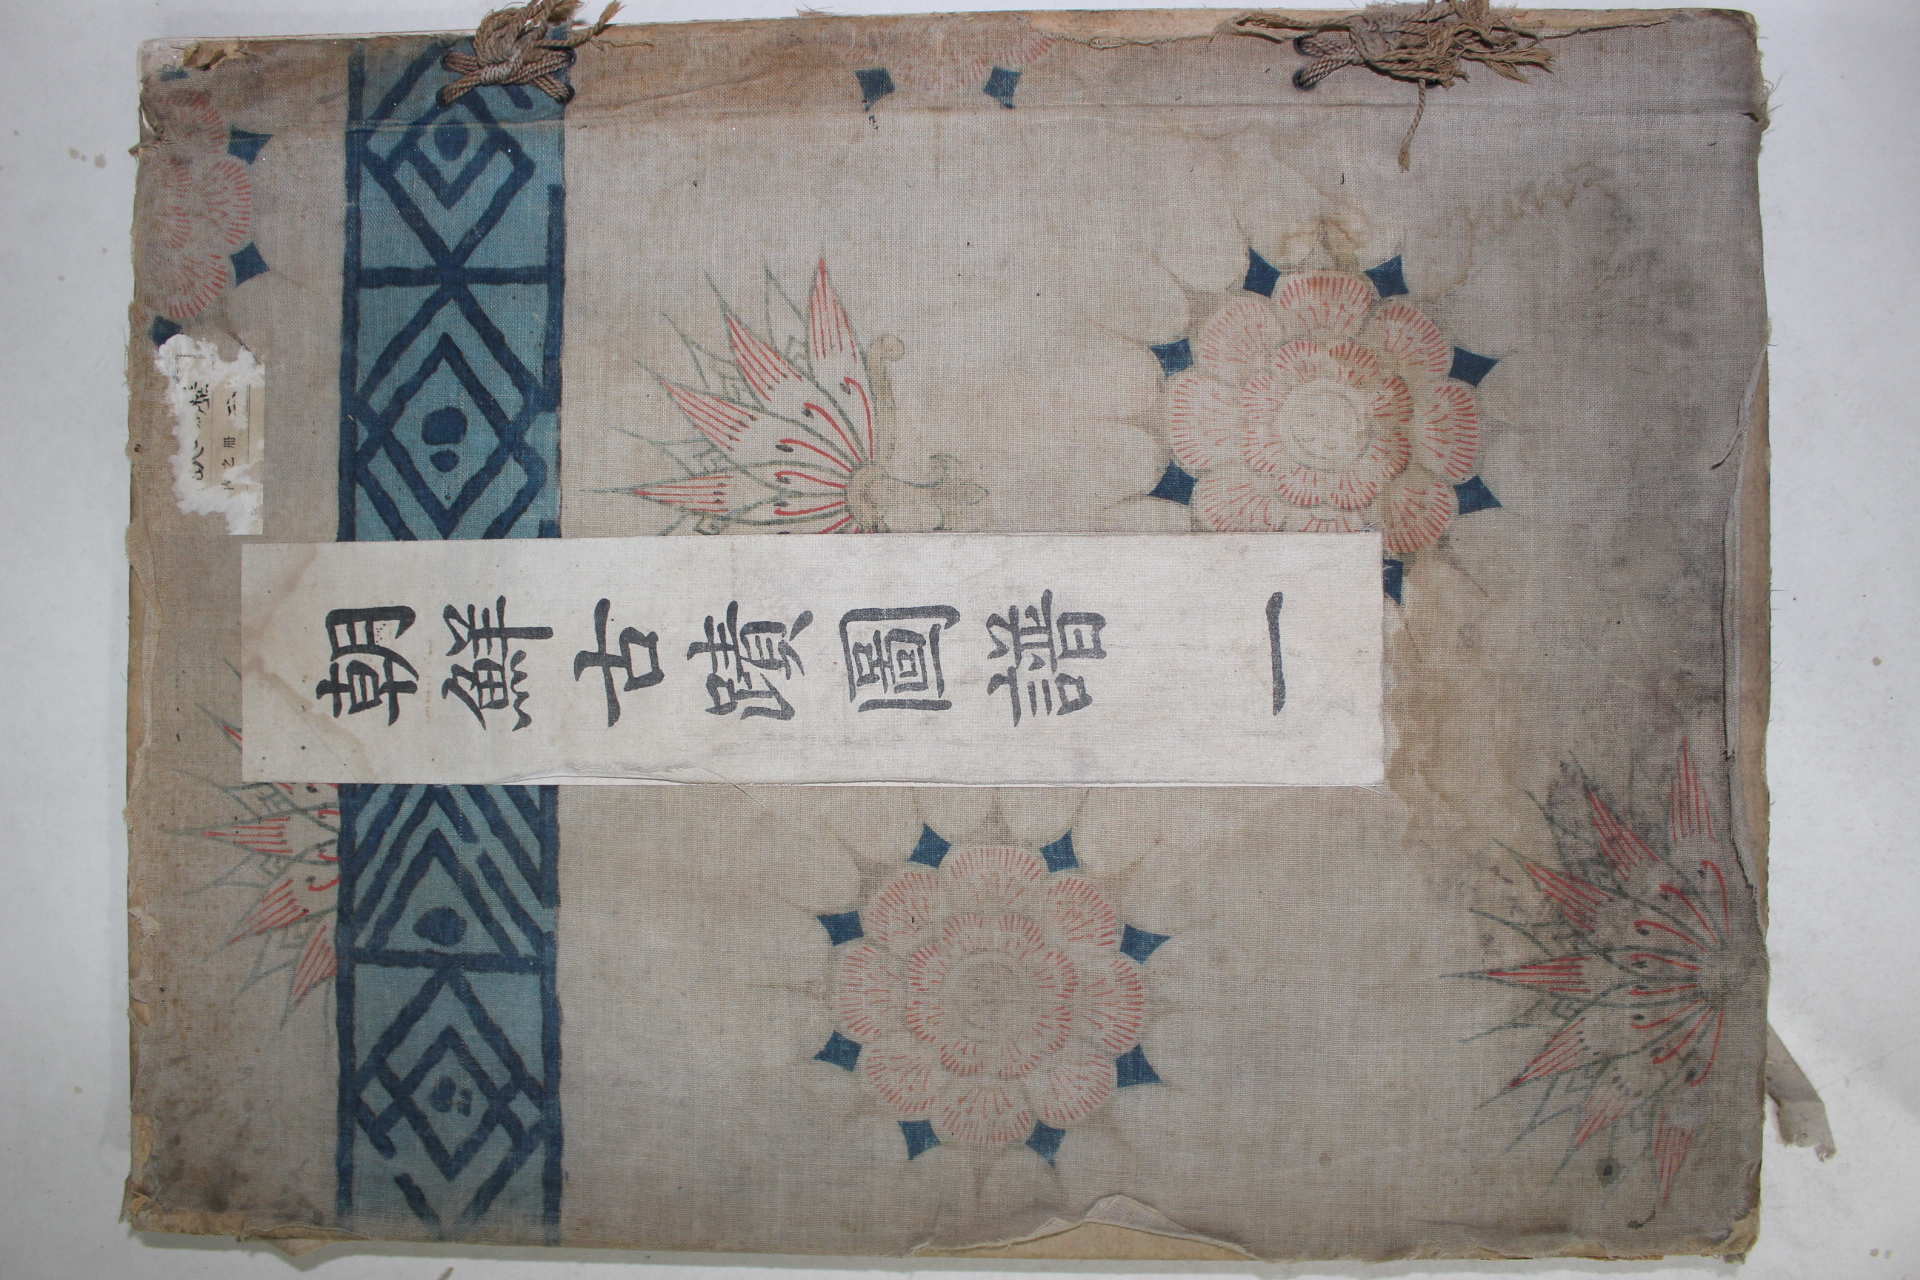 朝鮮古蹟圖譜 一